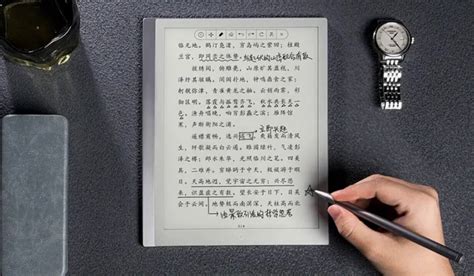 临无地。鹤汀凫渚,穷岛屿之萦回;桂殿
兰宫,即冈峦之体势。
披绣闼,俯雕甍,山原旷其盈视,川
泽纡其骇瞩。闾阎扑地,钟鸣鼎食之家;
舸舰弥津,青雀黄龙之舳。云销雨霁,彩
彻区明。落霞与孤鹜齐飞,秋水共长天一
色。渔舟唱晚,响穷彭蠡之滨;雁阵惊
寒,声断衡阳之浦。
遥襟甫畅,逸兴遄飞。爽籁发而清风
生,纤歌凝而白云遏。睢园绿竹,气凌彭
泽之樽;邺水朱华,光照临川之笔。四美
具,二难并。穷睇眄于中天,极娱游于暇
日。天高地迥,觉宇宙之无穷;兴尽悲
来,识盈虚之有数。望长安于日下,目吴
会于云间。地势极而南溟深,天柱高而北
引发的哲学思考